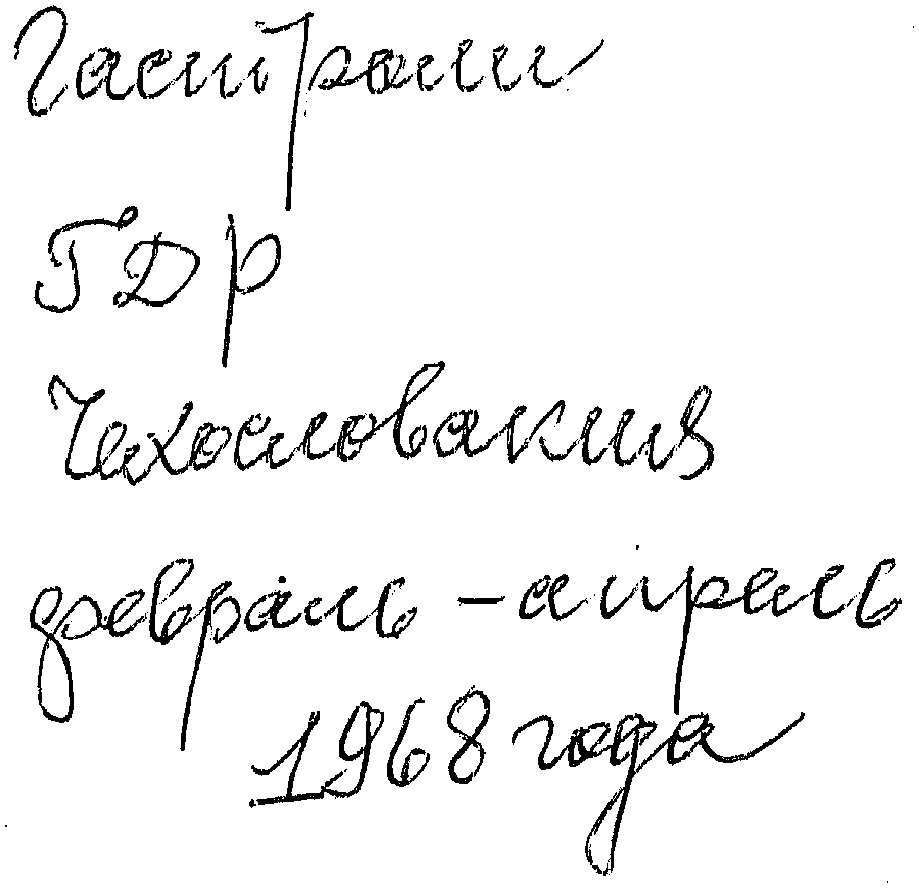 Гастроли
ГДР
Чехословакия
февраль - апрель
1968 года